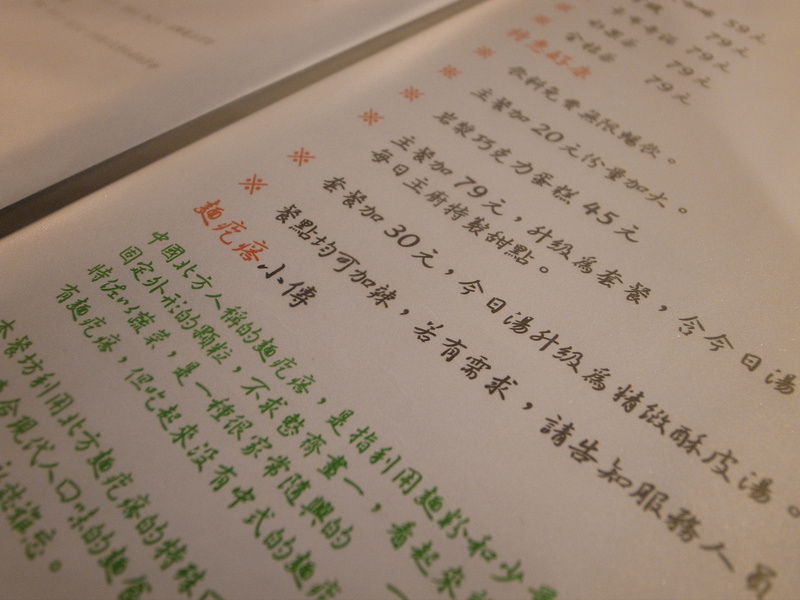 59元
79元
79元
79元
※ 飲料免費無限暢飲。
※ 主餐加20元份量加大。
※ 岩漿巧克力蛋糕 45元
※ 主餐加79元，升級為套餐，含今日湯
每日主廚特製甜點。
※ 套餐加30元，今日湯升級為精緻酥皮湯。
※ 餐點均可加辣，若有需求，請告知服務人員
麵疙瘩小傳
中國北方人稱的麵疙瘩，是指利用麵粉和少量
固定外形的顆粒，不求整齊畫一，看起來
特佐以蔬菜，是一種很家常隨興的
有麵疙瘩，但吃起來沒有中式的麵疙
本餐坊利用北方麵疙瘩的特殊口
合現代人口味的麵食